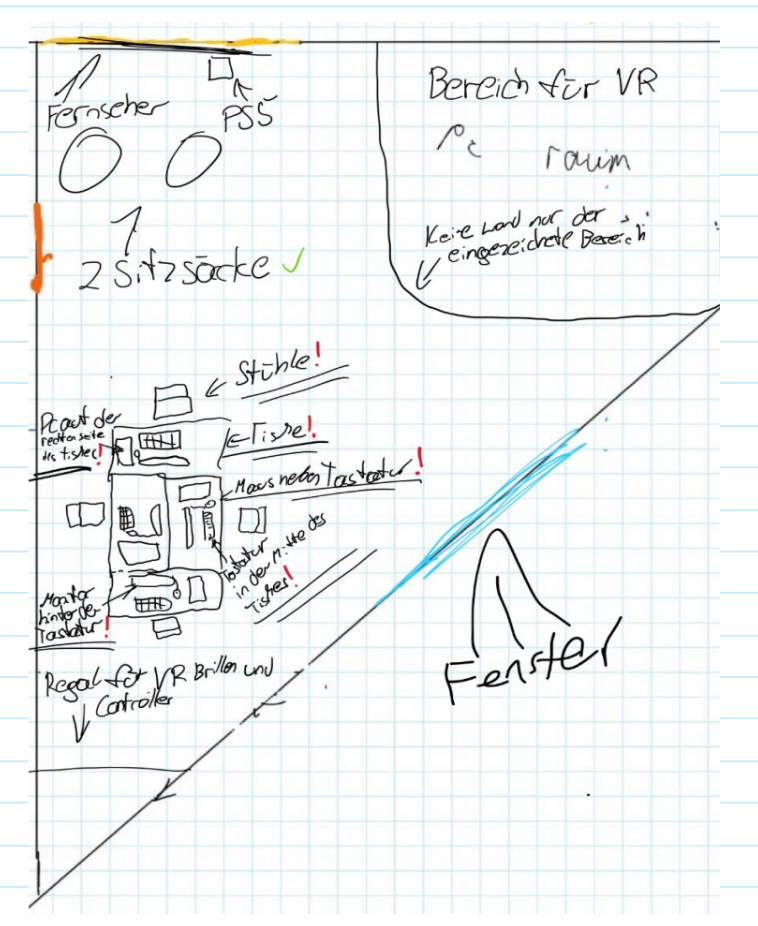 Fernseher
PS5
Bereich für VR
Pc raum
Keine wand nur der
eingezeichete Bereich
2 Sitzsäcke ✓
Stühle!
Pc auf der
rechten seite
des tisches!
Tische!
Maus neben Tastatur!
Tastatur
in der Mitte des
Tisches!
Monitor
hinter der
Tastatur!
Fenster
Regal für VR Brillen und
Controller